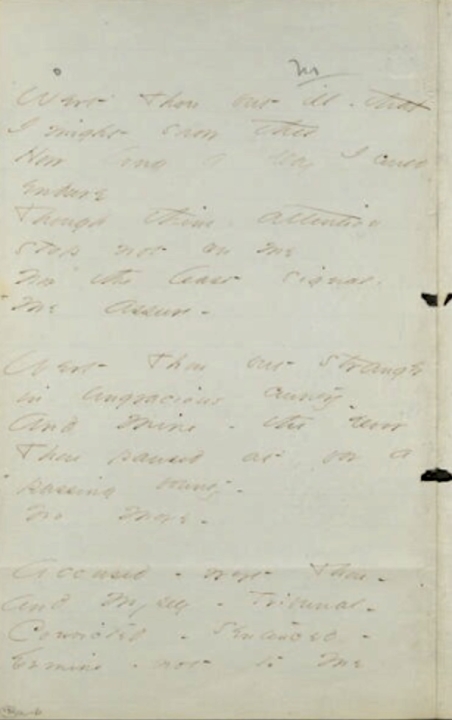 Wert Thou but ill - that
I might show thee
How long a Day I could
Endure
Though thine attention
stop not on me
Nor the least signal.
Me Assure -
Wert Thou but Stranger
in ungracious country -
And Mine - the Door
Thou paused at for a
passing bounty -
No More -
Accused - wert Thou -
And Myself - Tribunal -
Convicted - Sentenced -
Ermine - not to Me